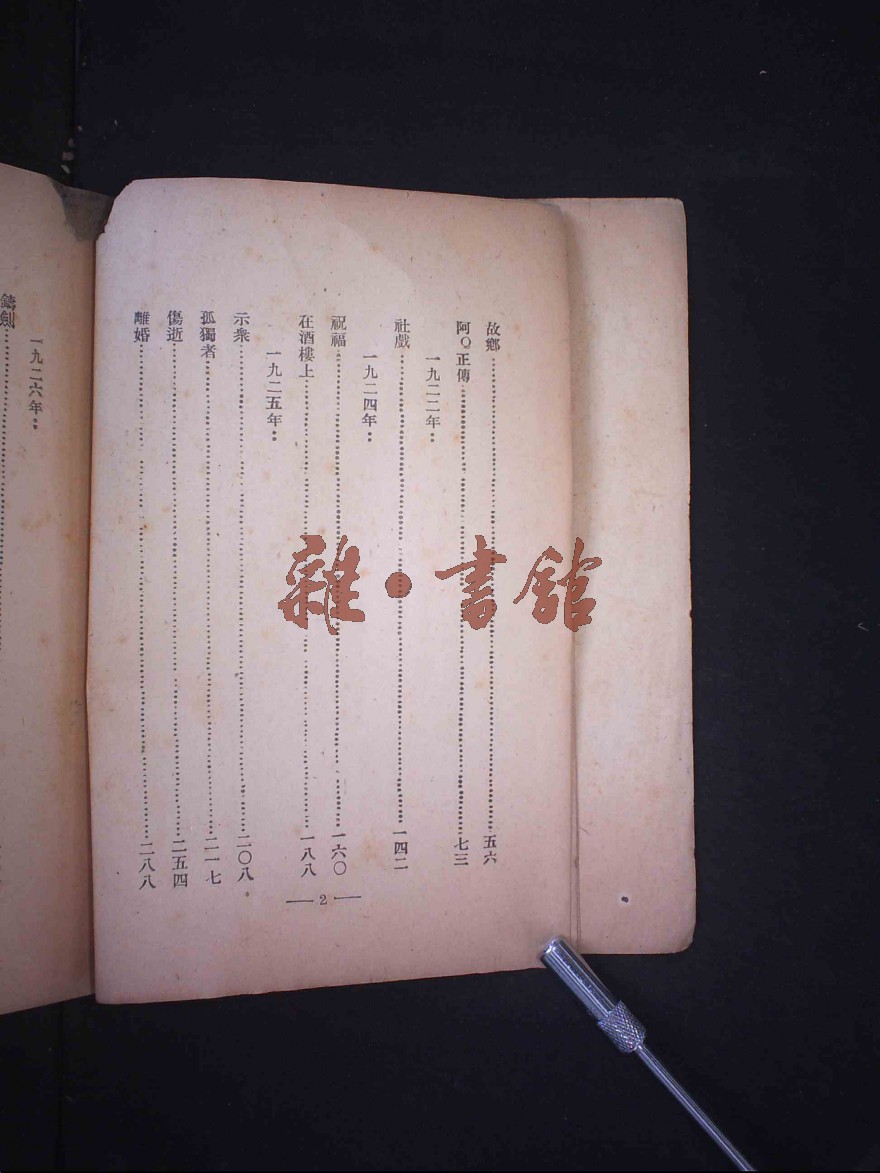 故鄉……五六
阿Q正傳……七三
一九二二年：
社戲……一四二
一九二四年：
祝福……一六〇
在酒樓上……一八八
一九二五年：
示衆……二〇八
孤獨者……二一七
傷逝……二五四
離婚……二八八
— 2 —
一九二六年：
鑄劍……
雜·書館